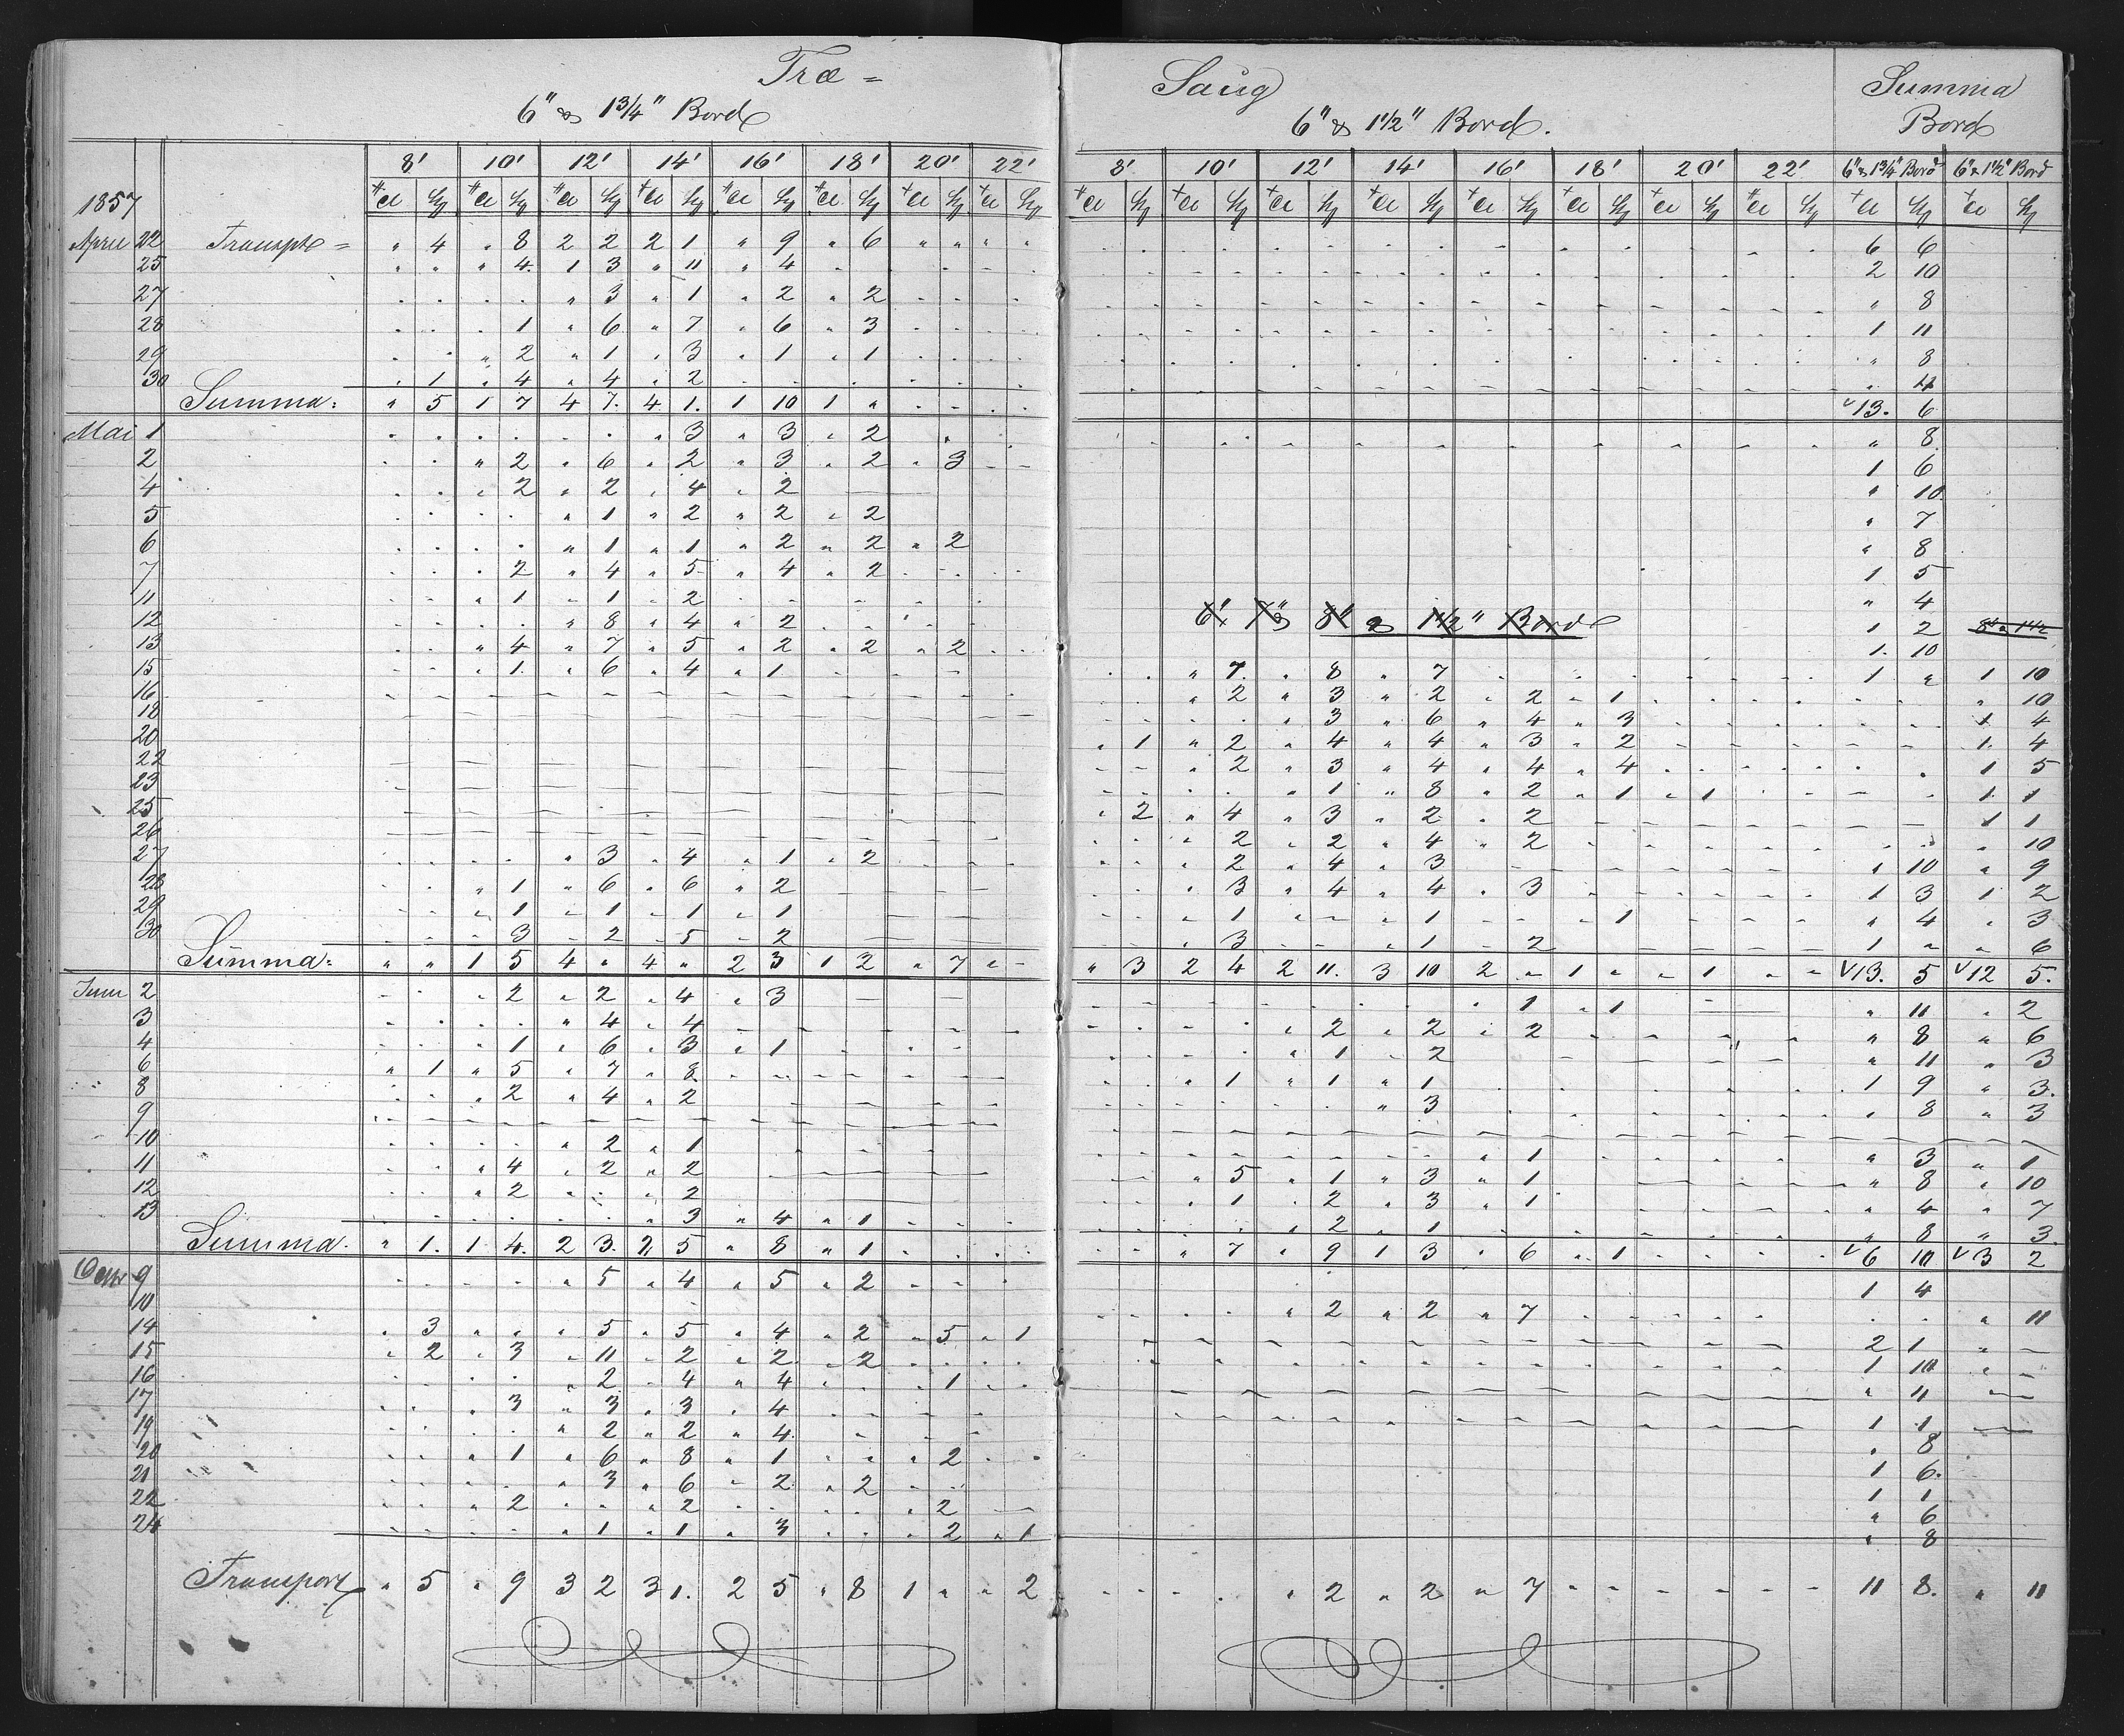 Træ = Saug Summa
6" & 1 3/4" Bord 6" & 1 1/2" Bord. Bord
8' 10' 12' 14' 16' 18' 20' 22' 8' 10' 12' 14' 16' 18' 20' 22' 6" & 1 3/4" Bord 6" & 1 1/2" Bord
1857
April 22 Transpt = " 4 " 8 2 2 2 1 " 9 " 6 " " " " 6 6
25 " " " 4 1 3 " 11 " 4 2 10
27 " 3 " 1 " 2 " 2 " 8
28 1 " 6 " 7 " 6 " 3 1 11
29 " 2 " 1 " 3 " 1 " 1 " 8
30 " 1 " 4 " 4 " 2 " 4
Summa: " 5 1 7 4 7. 4 1. 1 10 1 " 13. 6
Mai 1 " 3 " 3 " 2 " 8
2 " 2 " 6 " 2 " 3 " 2 " 3 1 6
4 " 2 " 2 " 4 " 2 " 10
5 " 1 " 2 " 2 " 2 " 7
6 " 1 " 1 " 2 " 2 " 2 " 8
7 2 " 4 " 5 " 4 " 2 1 5
11 " 1 " 1 " 2 " 4
6" 7" & 8" & 1 1/2" Bord
12 " 8 " 4 " 2 1 2 8" & 1 1/2
13 " 4 " 7 " 5 " 2 " 2 " 2 1. 10
15 " 1. " 6 " 4 " 1 " 7. " 8 " 7 1 " 1 10
16 " 2 " 3 " 2 " 2 " 1 " 10
18 " 3 " 6 " 4 " 3 1 4
20 " 1 " 2 " 4 " 4 " 3 " 2 1. 4
22 " 2 " 3 " 4 " 4 " 4 1 5
23 " 1 " 8 " 2 " 1 " 1 1. 1
25 " 2 " 4 " 3 " 2 " 2 1 1
26 " 2 " 2 " 4 " 2 " 10
27 " 3 " 4 " 1 " 2 " 2 " 4 " 3 " 10 " 9
28 " 1 " 6 " 6 " 2 " 3 " 4 " 4 " 3 1 3 1 2
29 " 1 " 1 " 1 " 1 " 1 " 1 1 " 4 " 3
30 3 " 2 " 5 " 2 " 3 " 1 " 2 1 " " 6
Summa: " " 1 5 4 " 4 " 2 3 1 2 " 7 " " 3 2 4 2 11. 3 10 2 " 1 " " 1 13. 5 12 5.
Juni 2 " 2 " 2 " 4 " 3 " 1 " 1 " 11 " 2
3 " 4 " 4 " 2 " 2 " 2 " 8 " 6
4 1 " 6 " 3 " 1 " 1 " 2 " 11 " 3
6 " 1 " 5 " 7 " 8 " 1 " 1 " 1 1 9 " 3.
8 2 " 4 " 2 " 3 " 8 " 3
9
10 " 2 " 1 " 1 " 3 " 1
11 " 4 " 2 " 2 " 5 " 1 " 3 " 1 " 8 " 10
12 " 2 " 2 " 1 " 2 " 3 " 1 " 4 " 7
13 " 3 " 4 " 1 " 2 " 1 " 8 " 3.
Summa. " 1. 1 4. 2 3. 2 5 " 8 " 1 " 7 " 9 1 3 " 6 " 1 6 10 3 2
9 " 5 " 4 " 5 " 2 1 4
10 " 2 " 2 " 7 " 11
14 " 3 " " " 5 " 5 " 4 " 2 " 5 " 1 2 1
15 " 2 " 3 " 11 " 2 " 2 " 2 1 10
16 " 2 " 4 " 4 1 " 11
17 " 3 " 3 " 3 " 4 1 1
19 " 2 " 2 " 4 " 8
20 " 1 " 6 " 8 " 1 " 2 1 6.
21 " 3 " 6 " 2 " 2 1 1
22 " 2 " 2 " 2 " 6
24 " 1 " 1 " 3 " 2 " 1 " 8
Transport " 5 " 9 3 2 3 1. 2 5 " 8 1 " " 2 " 2 " 2 " 7 11 8. " 11